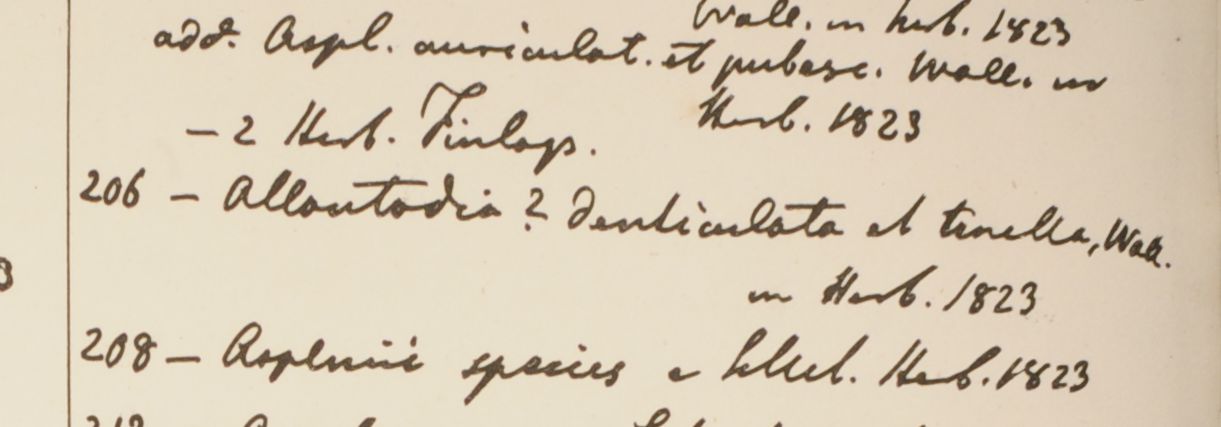 Wall. in herb. 1823
add. Aspl. auriculat. et pubesc. Wall. in
Herb. 1823
— 2 Herb. Finlays.
206 — Allantodia ? denticulata et tenella, Wall.
3
in Herb. 1823
208 — Asplenii species e Sillet. Herb. 1823